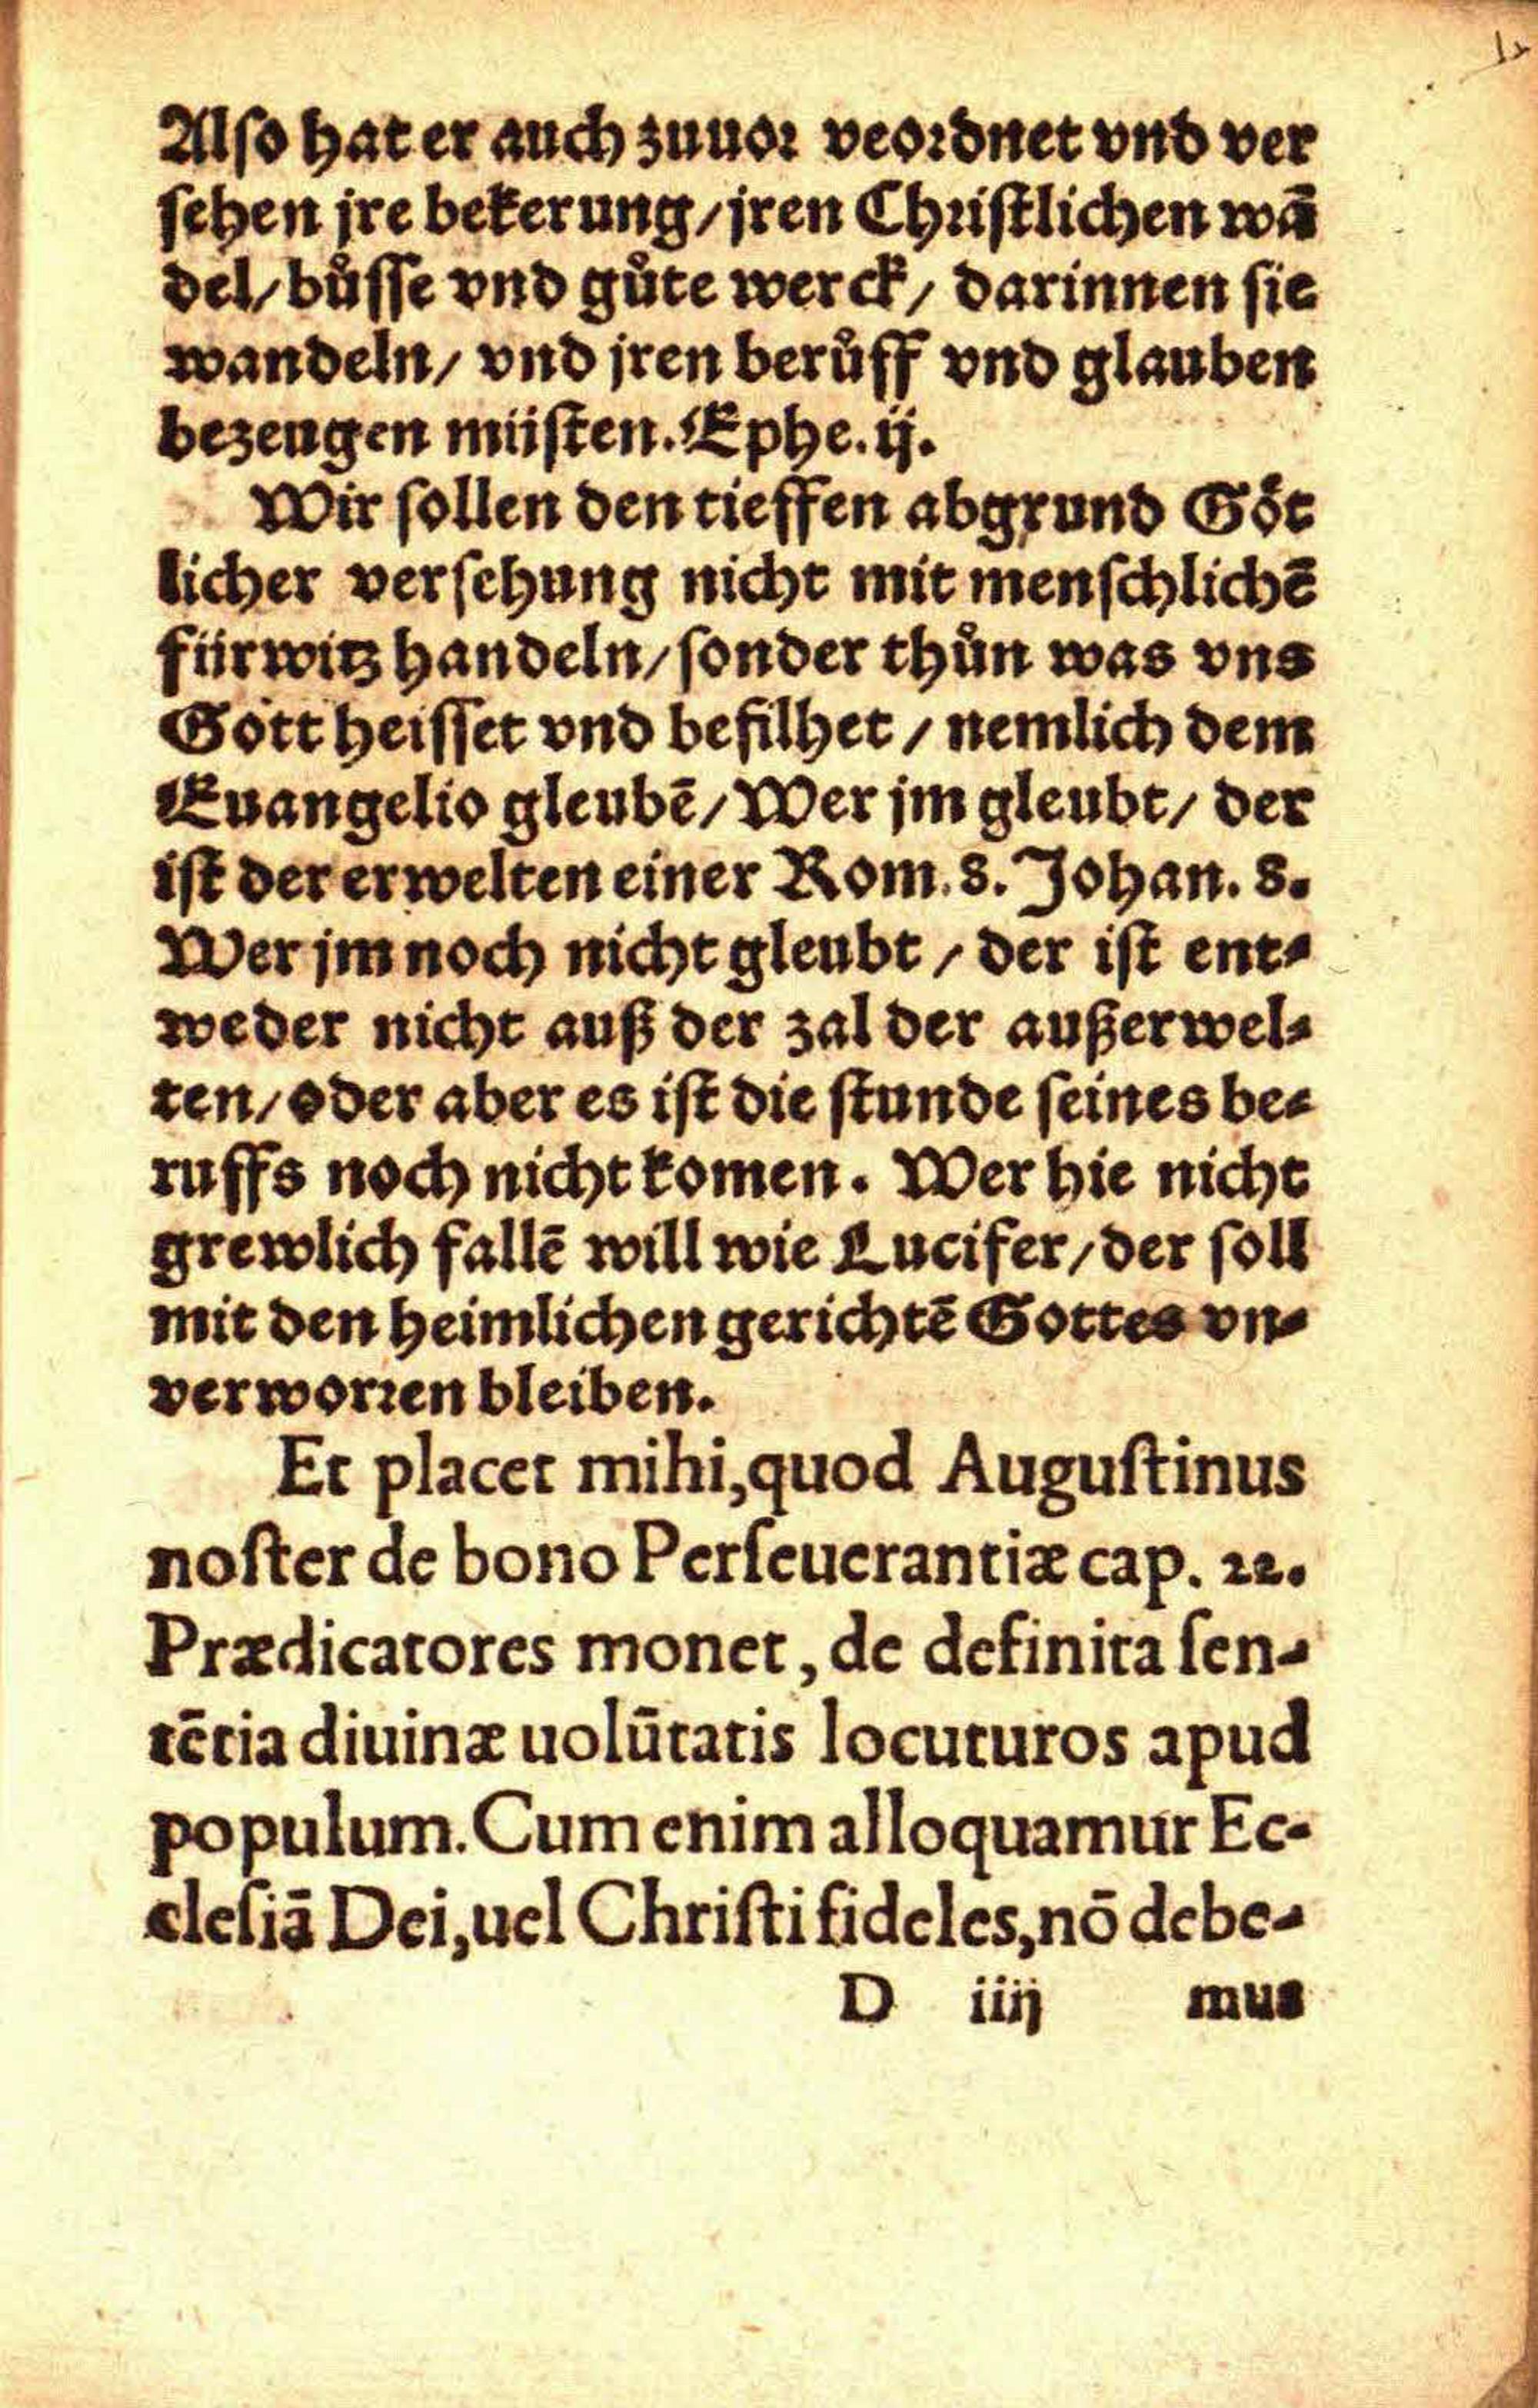 Also hat er auch zuuor veordnet vnd ver
sehen jre bekerung/jren Christlichen wā
del/bůsse vnd gůte werck/ darinnen sie
wandeln/ vnd jren berůff vnd glauben
bezeugen müsten. Ephe. ij.
Wir sollen den tieffen abgrund Göt
licher versehung nicht mit menschlichē
fürwitz handeln/sonder thůn was vns
Gott heisset vnd befilhet / nemlich dem
Euangelio gleubē/Wer jm gleubt/ der
ist der erwelten einer Rom. 8. Johan. 8.
Wer jm noch nicht gleubt / der ist ent-
weder nicht auß der zal der außerwel-
ten/oder aber es ist die stunde seines be-
ruffs noch nicht komen. Wer hie nicht
grewlich fallē will wie Lucifer/der soll
mit den heimlichen gerichtē Gottes vn-
verworren bleiben.
Et placet mihi,quod Auguſtinus
noſter de bono Perſeuerantiæ cap. 22.
Prædicatores monet, de definita ſen-
tētia diuinæ uolūtatis locuturos apud
populum. Cum enim alloquamur Ec-
cleſiā Dei,uel Chriſti fideles,nō debe-
D iiij mus